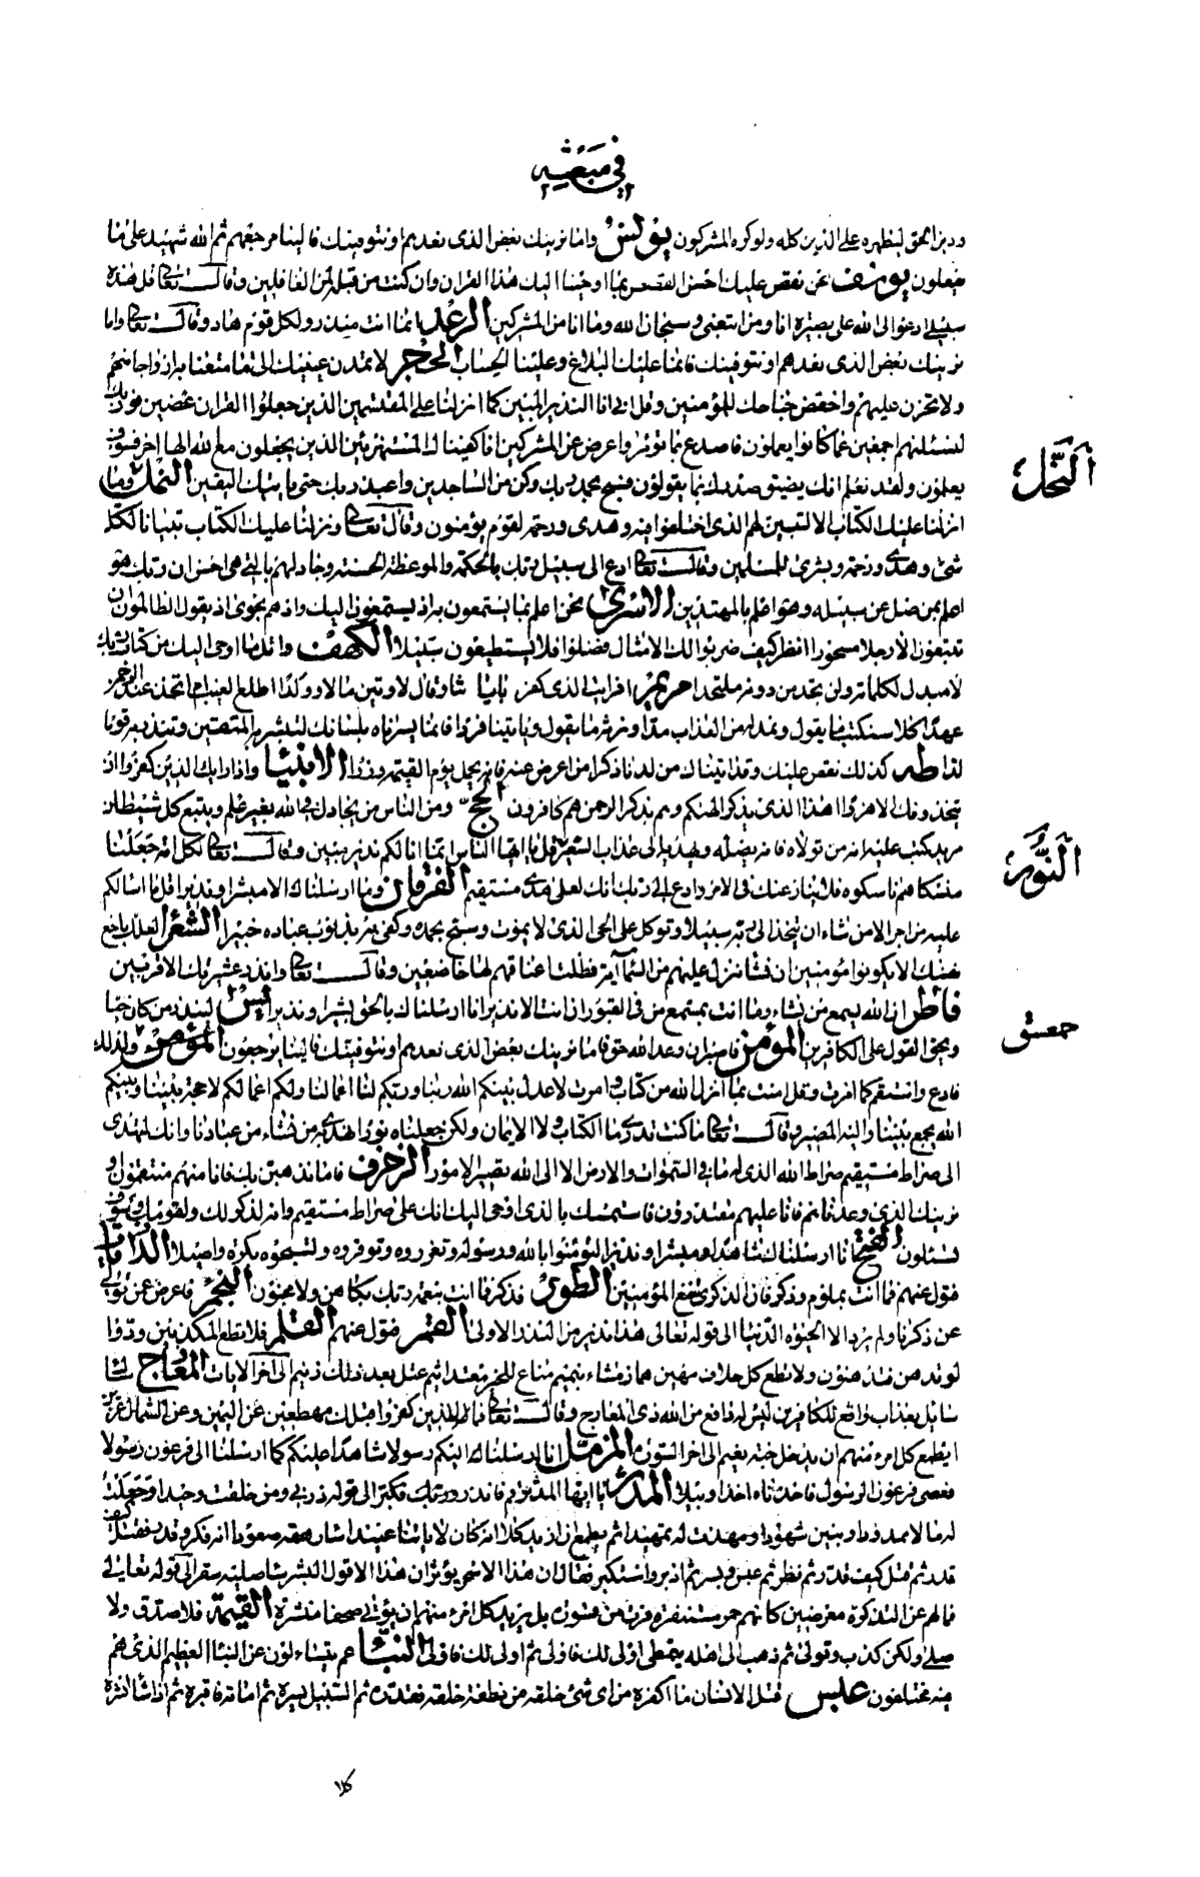 في مبعثه
ودين الحق ليظهره على الدين كله ولو كره المشركون يونس واما نرينك بعض الذى نعدهم او نتوفينك فالينا مرجعهم ثم الله شهيد على ما
يفعلون يوسف نحن نقص عليك احسن القصص بما اوحينا اليك هذا القران وان كنت من قبله لمن الغافلين وقال تعالى قل هذه
سبيلى ادعوا الى الله على بصيرة انا ومن اتبعنى وسبحان الله وما انا من المشركين الرعد انما انت منذر ولكل قوم هاد وقال تعالى واما
نرينك بعض الذى نعدهم او نتوفينك فانما عليك البلاغ وعلينا الحساب الحجر لا تمدن عينيك الى ما متعنا به ازواجا منهم
ولا تحزن عليهم واخفض جناحك للمؤمنين وقل انى انا النذير المبين كما انزلنا على المقتسمين الذين جعلوا القران عضين فوربك
لنسئلنهم اجمعين عما كانوا يعملون فاصدع بما تؤمر واعرض عن المشركين انا كفيناك المستهزئين الذين يجعلون مع الله الها اخر فسوف
يعلمون ولقد نعلم انك يضيق صدرك بما يقولون فسبح بحمد ربك وكن من الساجدين واعبد ربك حتى ياتيك اليقين النحل وما
انزلنا عليك الكتاب الا لتبين لهم الذى اختلفوا فيه وهدى ورحمة لقوم يؤمنون وقال تعالى ونزلنا عليك الكتاب تبيانا لكل
شئ وهدى ورحمة وبشرى للمسلمين وقال تعالى ادع الى سبيل ربك بالحكمة والموعظة الحسنة وجادلهم بالتى هى احسن ان ربك هو
اعلم بمن ضل عن سبيله وهو اعلم بالمهتدين الاسرى نحن اعلم بما يستمعون به اذ يستمعون اليك واذ هم نجوى اذ يقول الظالمون ان
تتبعون الا رجلا مسحورا انظر كيف ضربوا لك الامثال فضلوا فلا يستطيعون سبيلا الكهف واتل ما اوحى اليك من كتاب ربك
لا مبدل لكلماته ولن تجد من دونه ملتحدا مريم افرايت الذى كفر باياتنا وقال لاوتين مالا وولدا اطلع الغيب ام اتخذ عند الرحمن
عهدا كلا سنكتب ما يقول ونمد له من العذاب مدا ونرثه ما يقول وياتينا فردا فانما يسرناه بلسانك لتبشر به المتقين وتنذر به قوما
لدا طه كذلك نقص عليك وقد اتيناك من لدنا ذكرا من اعرض عنه فانه يحمل يوم القيمة وزرا الانبيا واذا راك الذين كفروا ان
يتخذونك الا هزوا اهذا الذى يذكر الهتكم وهم بذكر الرحمن هم كافرون الحج ومن الناس من يجادل فى الله بغير علم ويتبع كل شيطان
مريد كتب عليه انه من تولاه فانه يضله ويهديه الى عذاب السعير قل يا ايها الناس انما انا لكم نذير مبين وقال تعالى لكل امة جعلنا
منسكا هم ناسكوه فلا ينازعنك فى الامر وادع الى ربك انك لعلى هدى مستقيم الفرقان وما ارسلناك الا مبشرا ونذيرا قل ما اسالكم
عليه من اجر الا من شاء ان يتخذ الى ربه سبيلا وتوكل على الحى الذى لا يموت وسبح بحمده وكفى به بذنوب عباده خبيرا الشعرا لعلك باخع
نفسك الا يكونوا مؤمنين ان نشا ننزل عليهم من السماء آية فظلت اعناقهم لها خاضعين وقال تعالى وانذر عشيرتك الاقربين
فاطر ان الله يسمع من يشاء وما انت بمسمع من فى القبور ان انت الا نذير انا ارسلناك بالحق بشيرا ونذيرا يس لينذر من كان حيا
ويحق القول على الكافرين المؤمن فاصبر ان وعد الله حق فاما نرينك بعض الذى نعدهم او نتوفينك فالينا يرجعون المؤمن فلذلك
فادع واستقم كما امرت وقل امنت بما انزل الله من كتاب وامرت لاعدل بينكم الله ربنا وربكم لنا اعمالنا ولكم اعمالكم لا حجة بيننا وبينكم
الله يجمع بيننا واليه المصير وقال تعالى ما كنت تدرى ما الكتاب ولا الايمان ولكن جعلناه نورا نهدى به من نشاء من عبادنا وانك لتهدى
الى صراط مستقيم صراط الله الذى له ما فى السموات والارض الا الى الله تصير الامور الزخرف فاما نذهبن بك فانا منهم منتقمون او
نرينك الذى وعدناهم فانا عليهم مقتدرون فاستمسك بالذى اوحى اليك انك على صراط مستقيم وانه لذكر لك ولقومك وسوف
تسئلون الفتح انا ارسلناك شاهدا ومبشرا ونذيرا لتؤمنوا بالله ورسوله وتعزروه وتوقروه وتسبحوه بكرة واصيلا الذاريات
فتول عنهم فما انت بملوم وذكر فان الذكرى تنفع المؤمنين الطور فذكر فما انت بنعمة ربك بكاهن ولا مجنون النجم فاعرض عن تولى
عن ذكرنا ولم يرد الا الحيوة الدنيا الى قوله تعالى هذا نذير من النذر الاولى القمر فتول عنهم القلم فلا تطع المكذبين ودوا
لو تدهن فيدهنون ولا تطع كل حلاف مهين هماز مشاء بنميم مناع للخير معتد اثيم عتل بعد ذلك زنيم الى آخر الايات المعارج سال
سايل بعذاب واقع للكافرين ليس له دافع من الله ذى المعارج وقال تعالى فما للذين كفروا قبلك مهطعين عن اليمين وعن الشمال عزين
ايطمع كل امرء منهم ان يدخل جنة نعيم الى اخر السورة المزمل انا ارسلنا اليكم رسولا شاهدا عليكم كما ارسلنا الى فرعون رسولا
فعصى فرعون الرسول فاخذناه اخذا وبيلا المدثر يا ايها المدثر قم فانذر وربك فكبر الى قوله ذرنى ومن خلقت وحيدا وجعلت
له مالا ممدودا وبنين شهودا ومهدت له تمهيدا ثم يطمع ان ازيد كلا انه كان لاياتنا عنيدا سارهقه صعودا انه فكر وقدر فقتل كيف
قدر ثم قتل كيف قدر ثم نظر ثم عبس وبسر ثم ادبر واستكبر فقال ان هذا الا سحر يؤثر ان هذا الا قول البشر ساصليه سقر الى قوله تعالى
فما لهم عن التذكرة معرضين كانهم حمر مستنفرة فرت من قسورة بل يريد كل امرء منهم ان يؤتى صحفا منشرة القيمة فلا صدق ولا
صلى ولكن كذب وتولى ثم ذهب الى اهله يتمطى اولى لك فاولى ثم اولى لك فاولى النبأ عم يتساءلون عن النبا العظيم الذى هم
فيه مختلفون عبس قتل الانسان ما اكفره من اى شئ خلقه من نطفة خلقه فقدره ثم السبيل يسره ثم اماته فاقبره ثم اذا شا انشره
النحل
النور
حمعسق
كلا